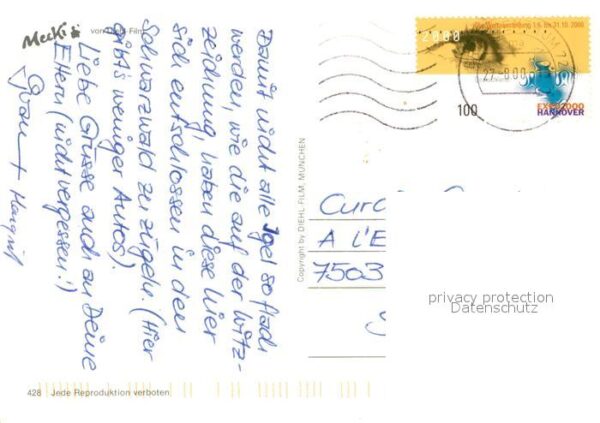 Mecki
von Diehl-Film
Damit nicht alle Igel so flach
werden, wie die auf der Witz-
zeichnung, haben diese hier
sich entschlossen in den
Schwarzwald zu zügeln. (Hier
gibt's weniger Autos).
Liebe Grüsse auch an Deine
Eltern (nicht vergessen!)
Copyright by DIEHL FILM, MÜNCHEN
2000
100
EXPO2000
HANNOVER
A L'E
7503
privacy protection
Datenschutz
428 Jede Reproduktion verboten.